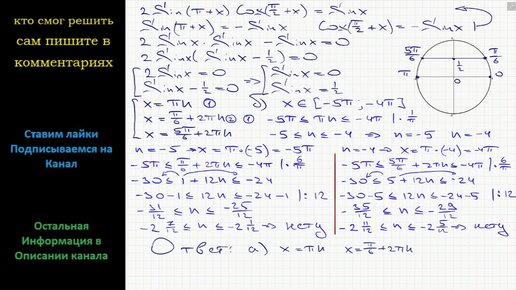 кто смог решить
сам пишите в
комментариях
Ставим лайки
Подписываемся на
Канал
Остальная
Информация в
Описании канала
2 Sin(π+x) Cos(π/2+x) = Sinx Cos(π/2+x) = -Sinx
2 Sinx · Sinx - Sinx = 0
2 Sinx (Sinx - 1/2) = 0
[ 2 Sinx = 0 => [ Sinx = 0
[ Sinx - 1/2 = 0 [ Sinx = 1/2
5π/6 π/6 1/2 π 0 0
[ x = πn ① б) x ∈ [-5π; -4π]
[ x = π/6 + 2πn ② ① -5π ≤ πn ≤ -4π | · 1/π
[ x = 5π/6 + 2πn -5 ≤ n ≤ -4 => n = -5 n = -4
n = -5 => x = π·(-5) = -5π
-5π ≤ π/6 + 2πn ≤ -4π | · 6/π
-30 ≤ 1 + 12n ≤ -24
-30-1 ≤ 12n ≤ -24-1 | :12
-31/12 ≤ n ≤ -25/12
-2 7/12 ≤ n ≤ -2 1/12 => нету
n = -4 => x = π·(-4) = -4π
-5π ≤ 5π/6 + 2πn ≤ -4π | · 6/π
-30 ≤ 5 + 12n ≤ -24
-30-5 ≤ 12n ≤ -24-5 | :12
-35/12 ≤ n ≤ -29/12
-2 11/12 ≤ n ≤ -2 5/12 => нету
Ответ: а) x = πn x = π/6 + 2πn